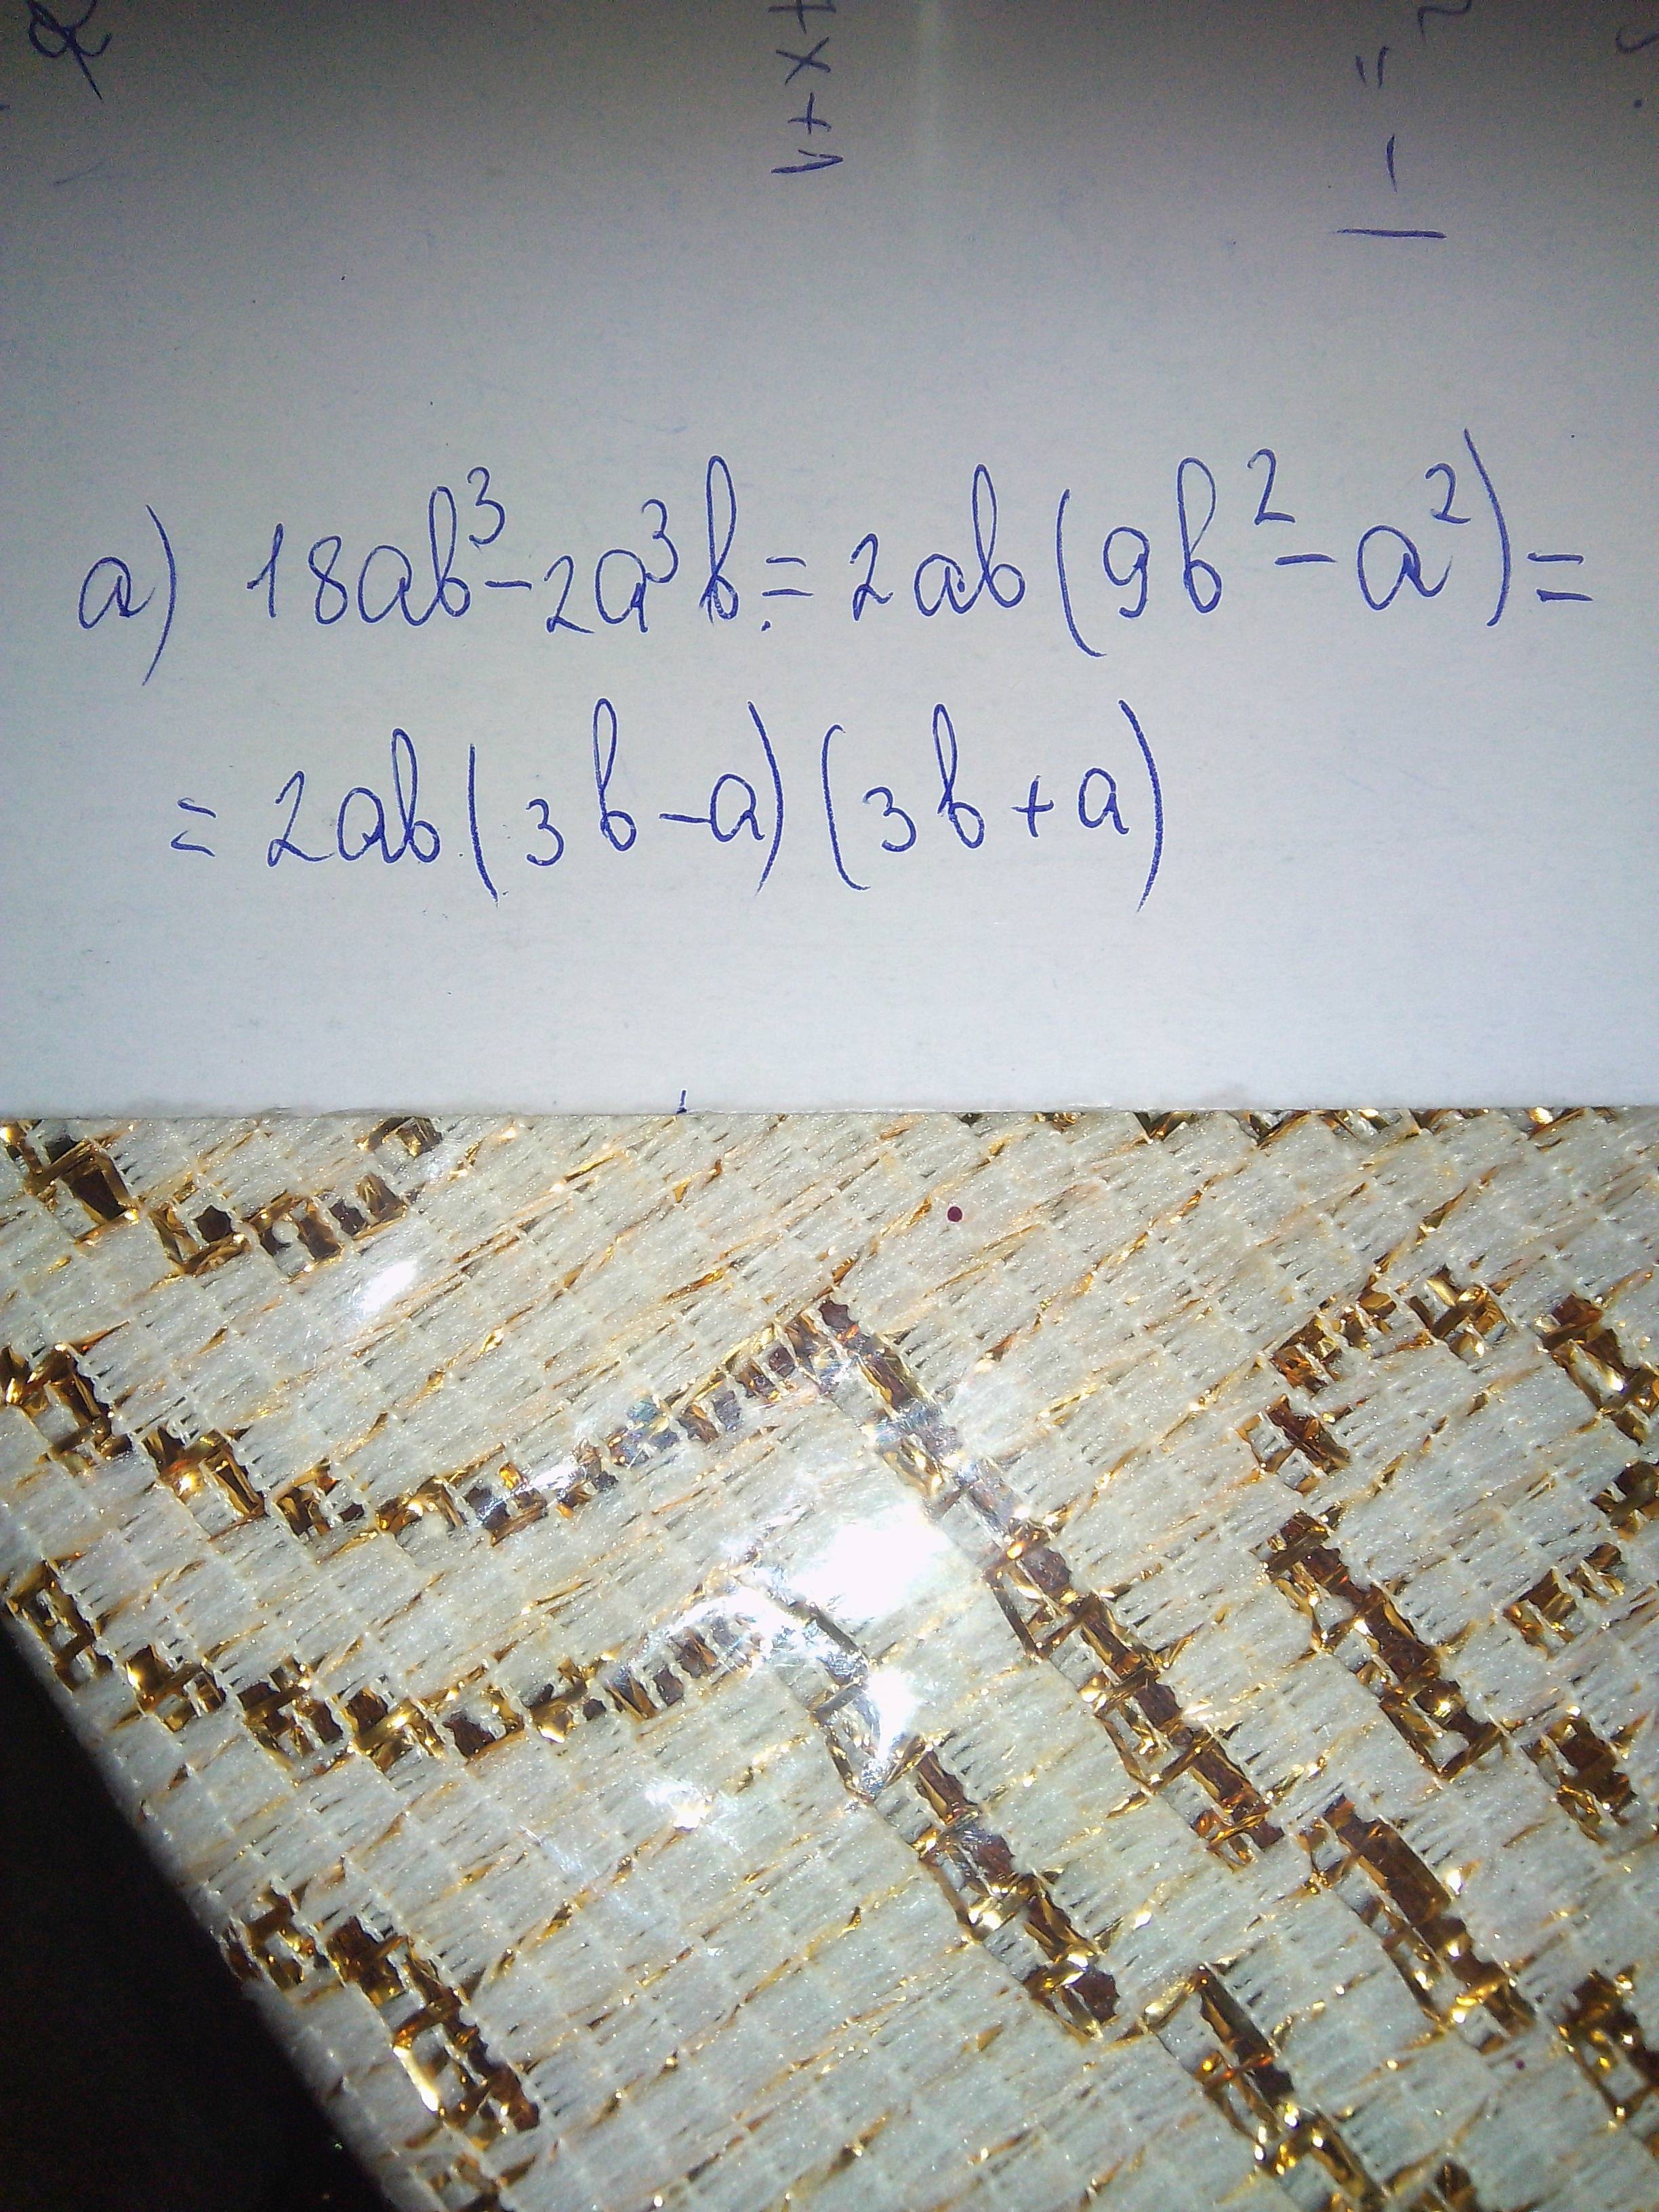 а) 18ab³-2a³b=2ab(9b²-a²)=
=2ab(3b-a)(3b+a)